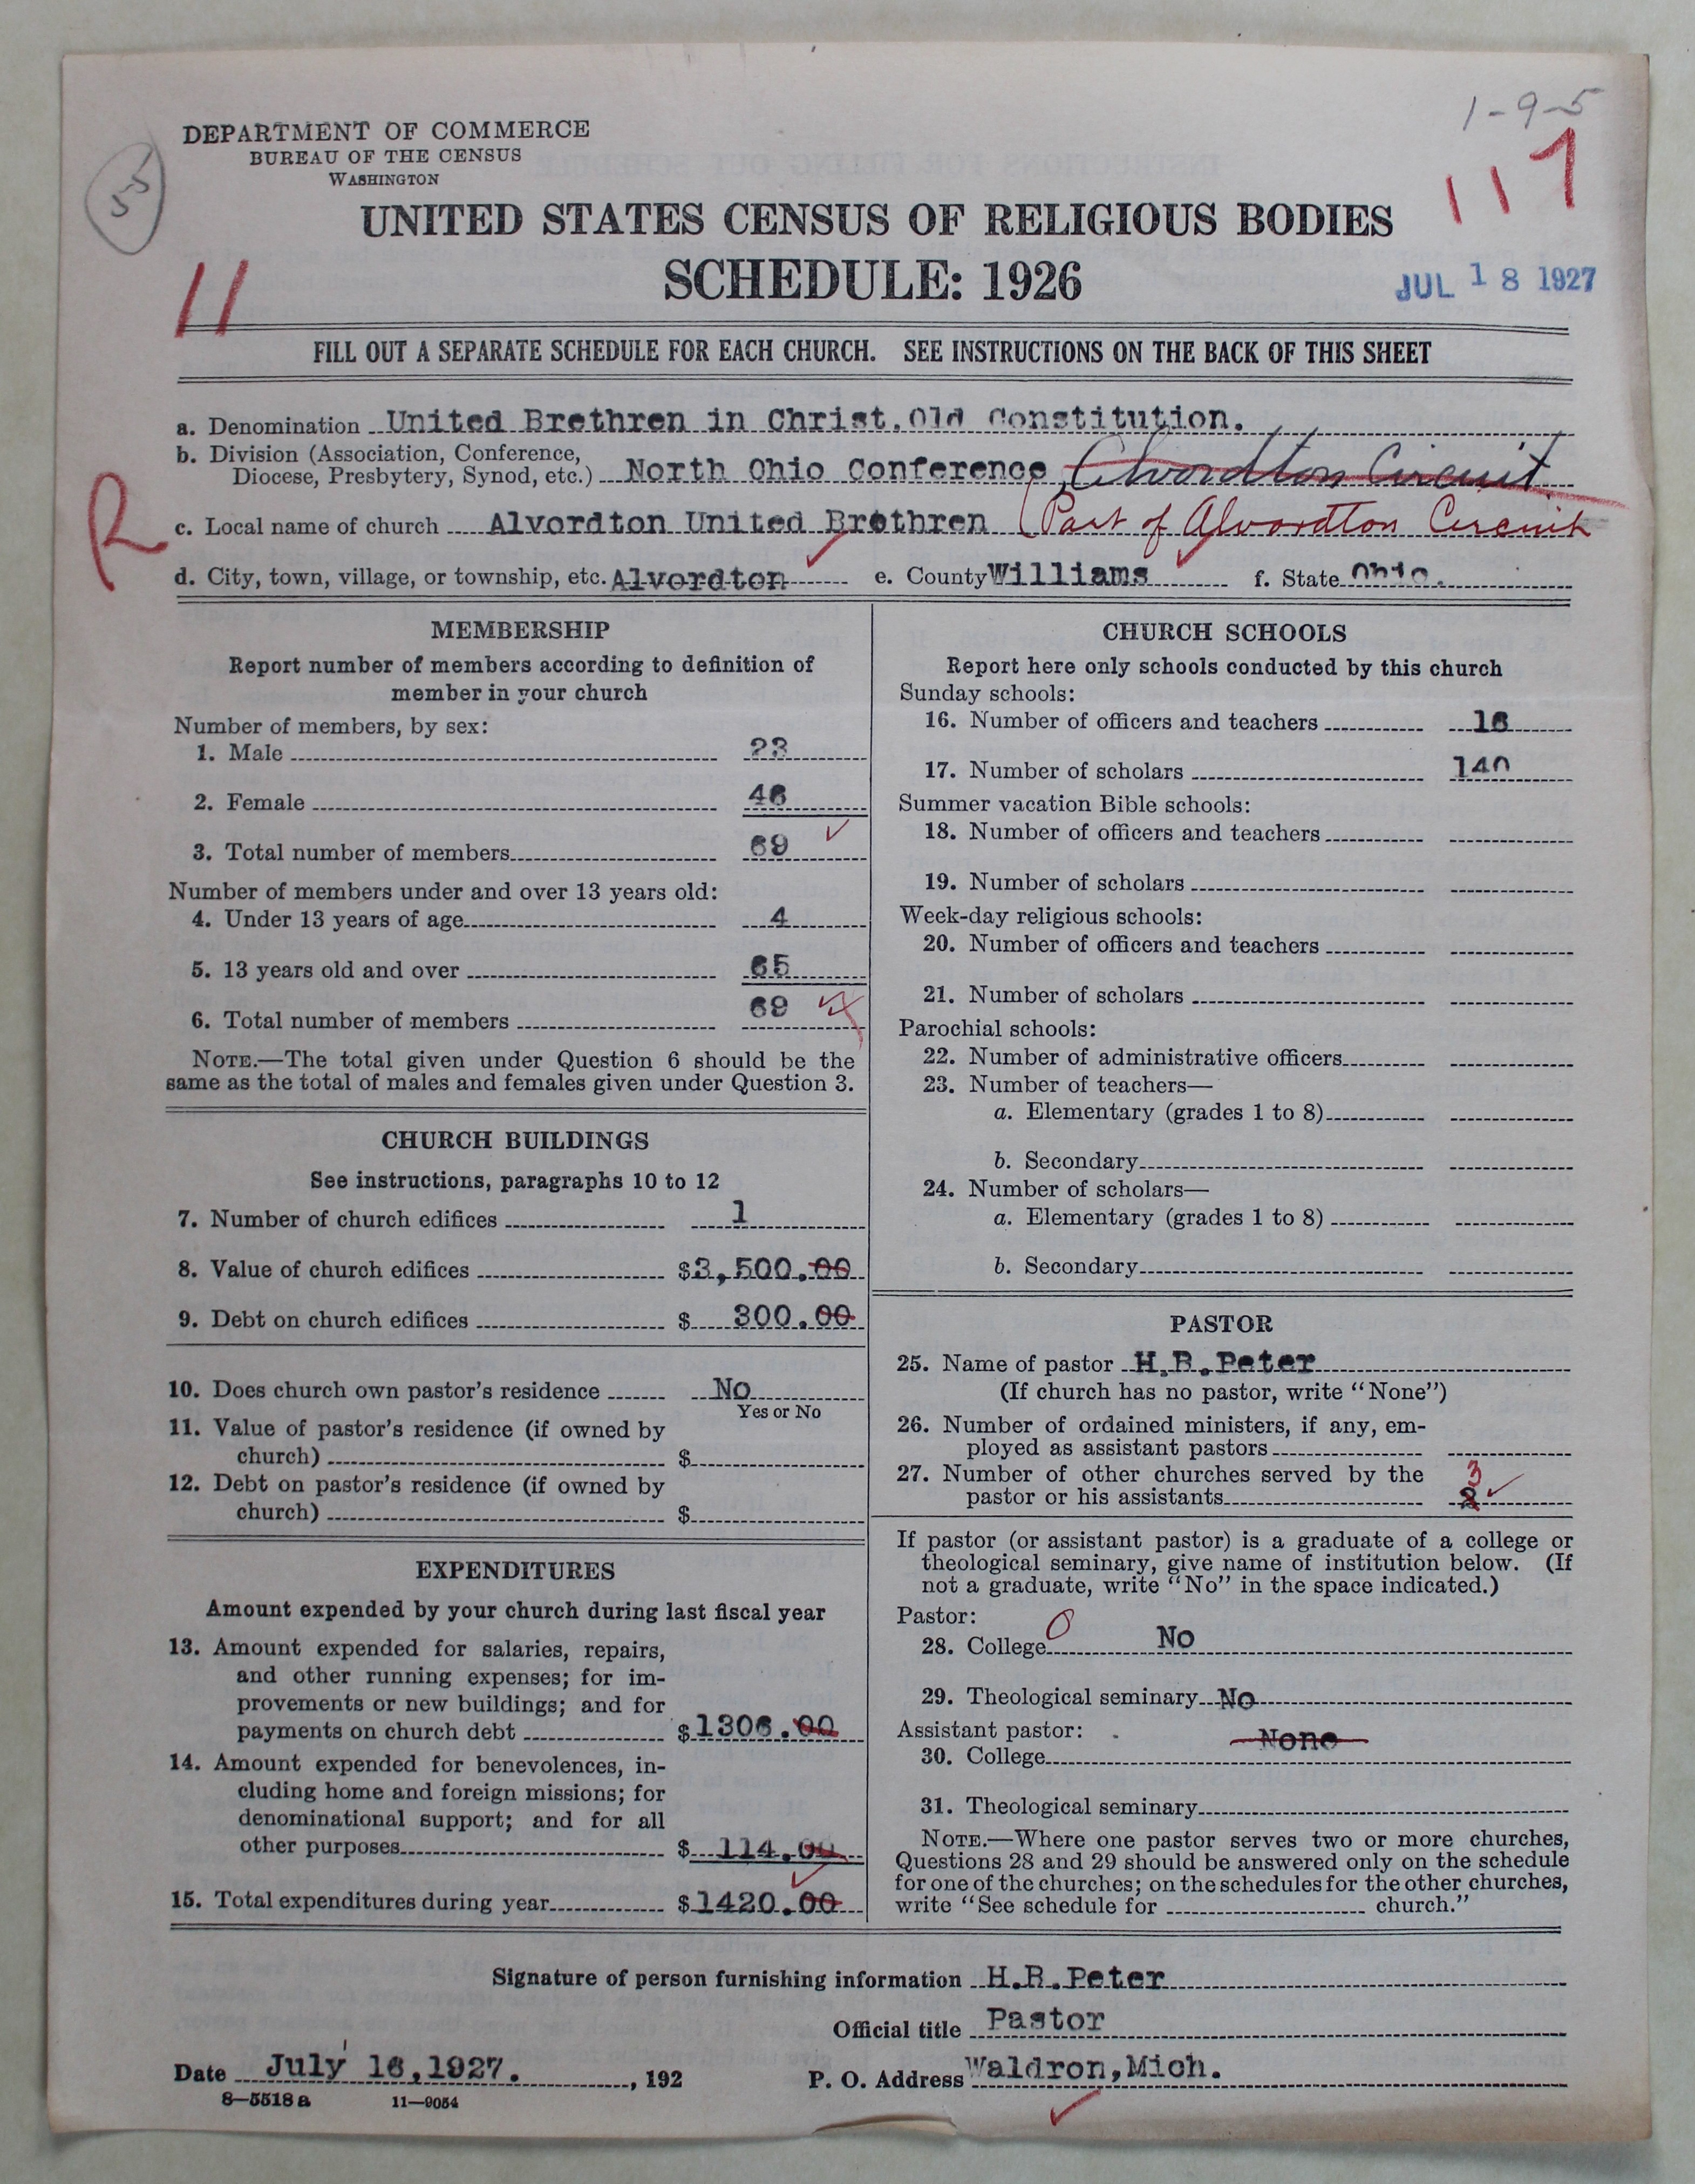 1-9-5
117
55
DEPARTMENT OF COMMERCE
BUREAU OF THE CENSUS
WASHINGTON
UNITED STATES CENSUS OF RELIGIOUS BODIES
SCHEDULE: 1926
JUL 18 1927
11
FILL OUT A SEPARATE SCHEDULE FOR EACH CHURCH. SEE INSTRUCTIONS ON THE BACK OF THIS SHEET
a. Denomination United Brethren in Christ.Old Constitution.
b. Division (Association, Conference,
Diocese, Presbytery, Synod, etc.) North Ohio Conference, Alvordton Circuit
R
c. Local name of church Alvordton United Brethren (Part of Alvordton Circuit
d. City, town, village, or township, etc. Alvordton e. County Williams f. State Ohio.
MEMBERSHIP
Report number of members according to definition of
member in your church
Number of members, by sex:
1. Male 23
2. Female 46
3. Total number of members 69
Number of members under and over 13 years old:
4. Under 13 years of age 4
5. 13 years old and over 65
6. Total number of members 69
NOTE.—The total given under Question 6 should be the
same as the total of males and females given under Question 3.
CHURCH BUILDINGS
See instructions, paragraphs 10 to 12
7. Number of church edifices 1
8. Value of church edifices $3,500.00
9. Debt on church edifices $ 300.00
10. Does church own pastor's residence No
Yes or No
11. Value of pastor's residence (if owned by
church) $
12. Debt on pastor's residence (if owned by
church) $
EXPENDITURES
Amount expended by your church during last fiscal year
13. Amount expended for salaries, repairs,
and other running expenses; for im-
provements or new buildings; and for
payments on church debt $1306.00
14. Amount expended for benevolences, in-
cluding home and foreign missions; for
denominational support; and for all
other purposes $ 114.00
15. Total expenditures during year $1420.00
CHURCH SCHOOLS
Report here only schools conducted by this church
Sunday schools:
16. Number of officers and teachers 16
17. Number of scholars 140
Summer vacation Bible schools:
18. Number of officers and teachers
19. Number of scholars
Week-day religious schools:
20. Number of officers and teachers
21. Number of scholars
Parochial schools:
22. Number of administrative officers
23. Number of teachers—
a. Elementary (grades 1 to 8)
b. Secondary
24. Number of scholars—
a. Elementary (grades 1 to 8)
b. Secondary
PASTOR
25. Name of pastor H.B.Peter
(If church has no pastor, write "None")
26. Number of ordained ministers, if any, em-
ployed as assistant pastors
27. Number of other churches served by the 3
pastor or his assistants
If pastor (or assistant pastor) is a graduate of a college or
theological seminary, give name of institution below. (If
not a graduate, write "No" in the space indicated.)
Pastor:
28. College 0 No
29. Theological seminary No
Assistant pastor: None
30. College
31. Theological seminary
NOTE.—Where one pastor serves two or more churches,
Questions 28 and 29 should be answered only on the schedule
for one of the churches; on the schedules for the other churches,
write "See schedule for church."
Signature of person furnishing information H.B.Peter
Official title Pastor
Date July 16,1927. , 192
P. O. Address Waldron,Mich.
8—5518 a 11—9054